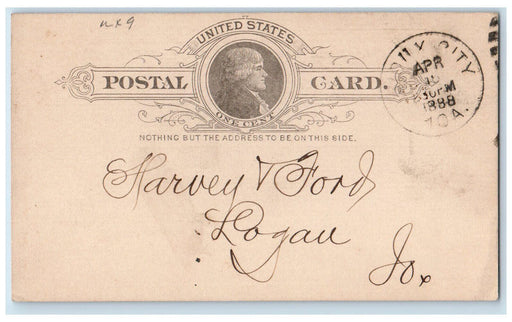 UNITED STATES
POSTAL CARD.
ONE CENT
NOTHING BUT THE ADDRESS TO BE ON THIS SIDE.
CITY
APR
30PM
1888
IOA.
Harvey & Ford
Logan
Io.